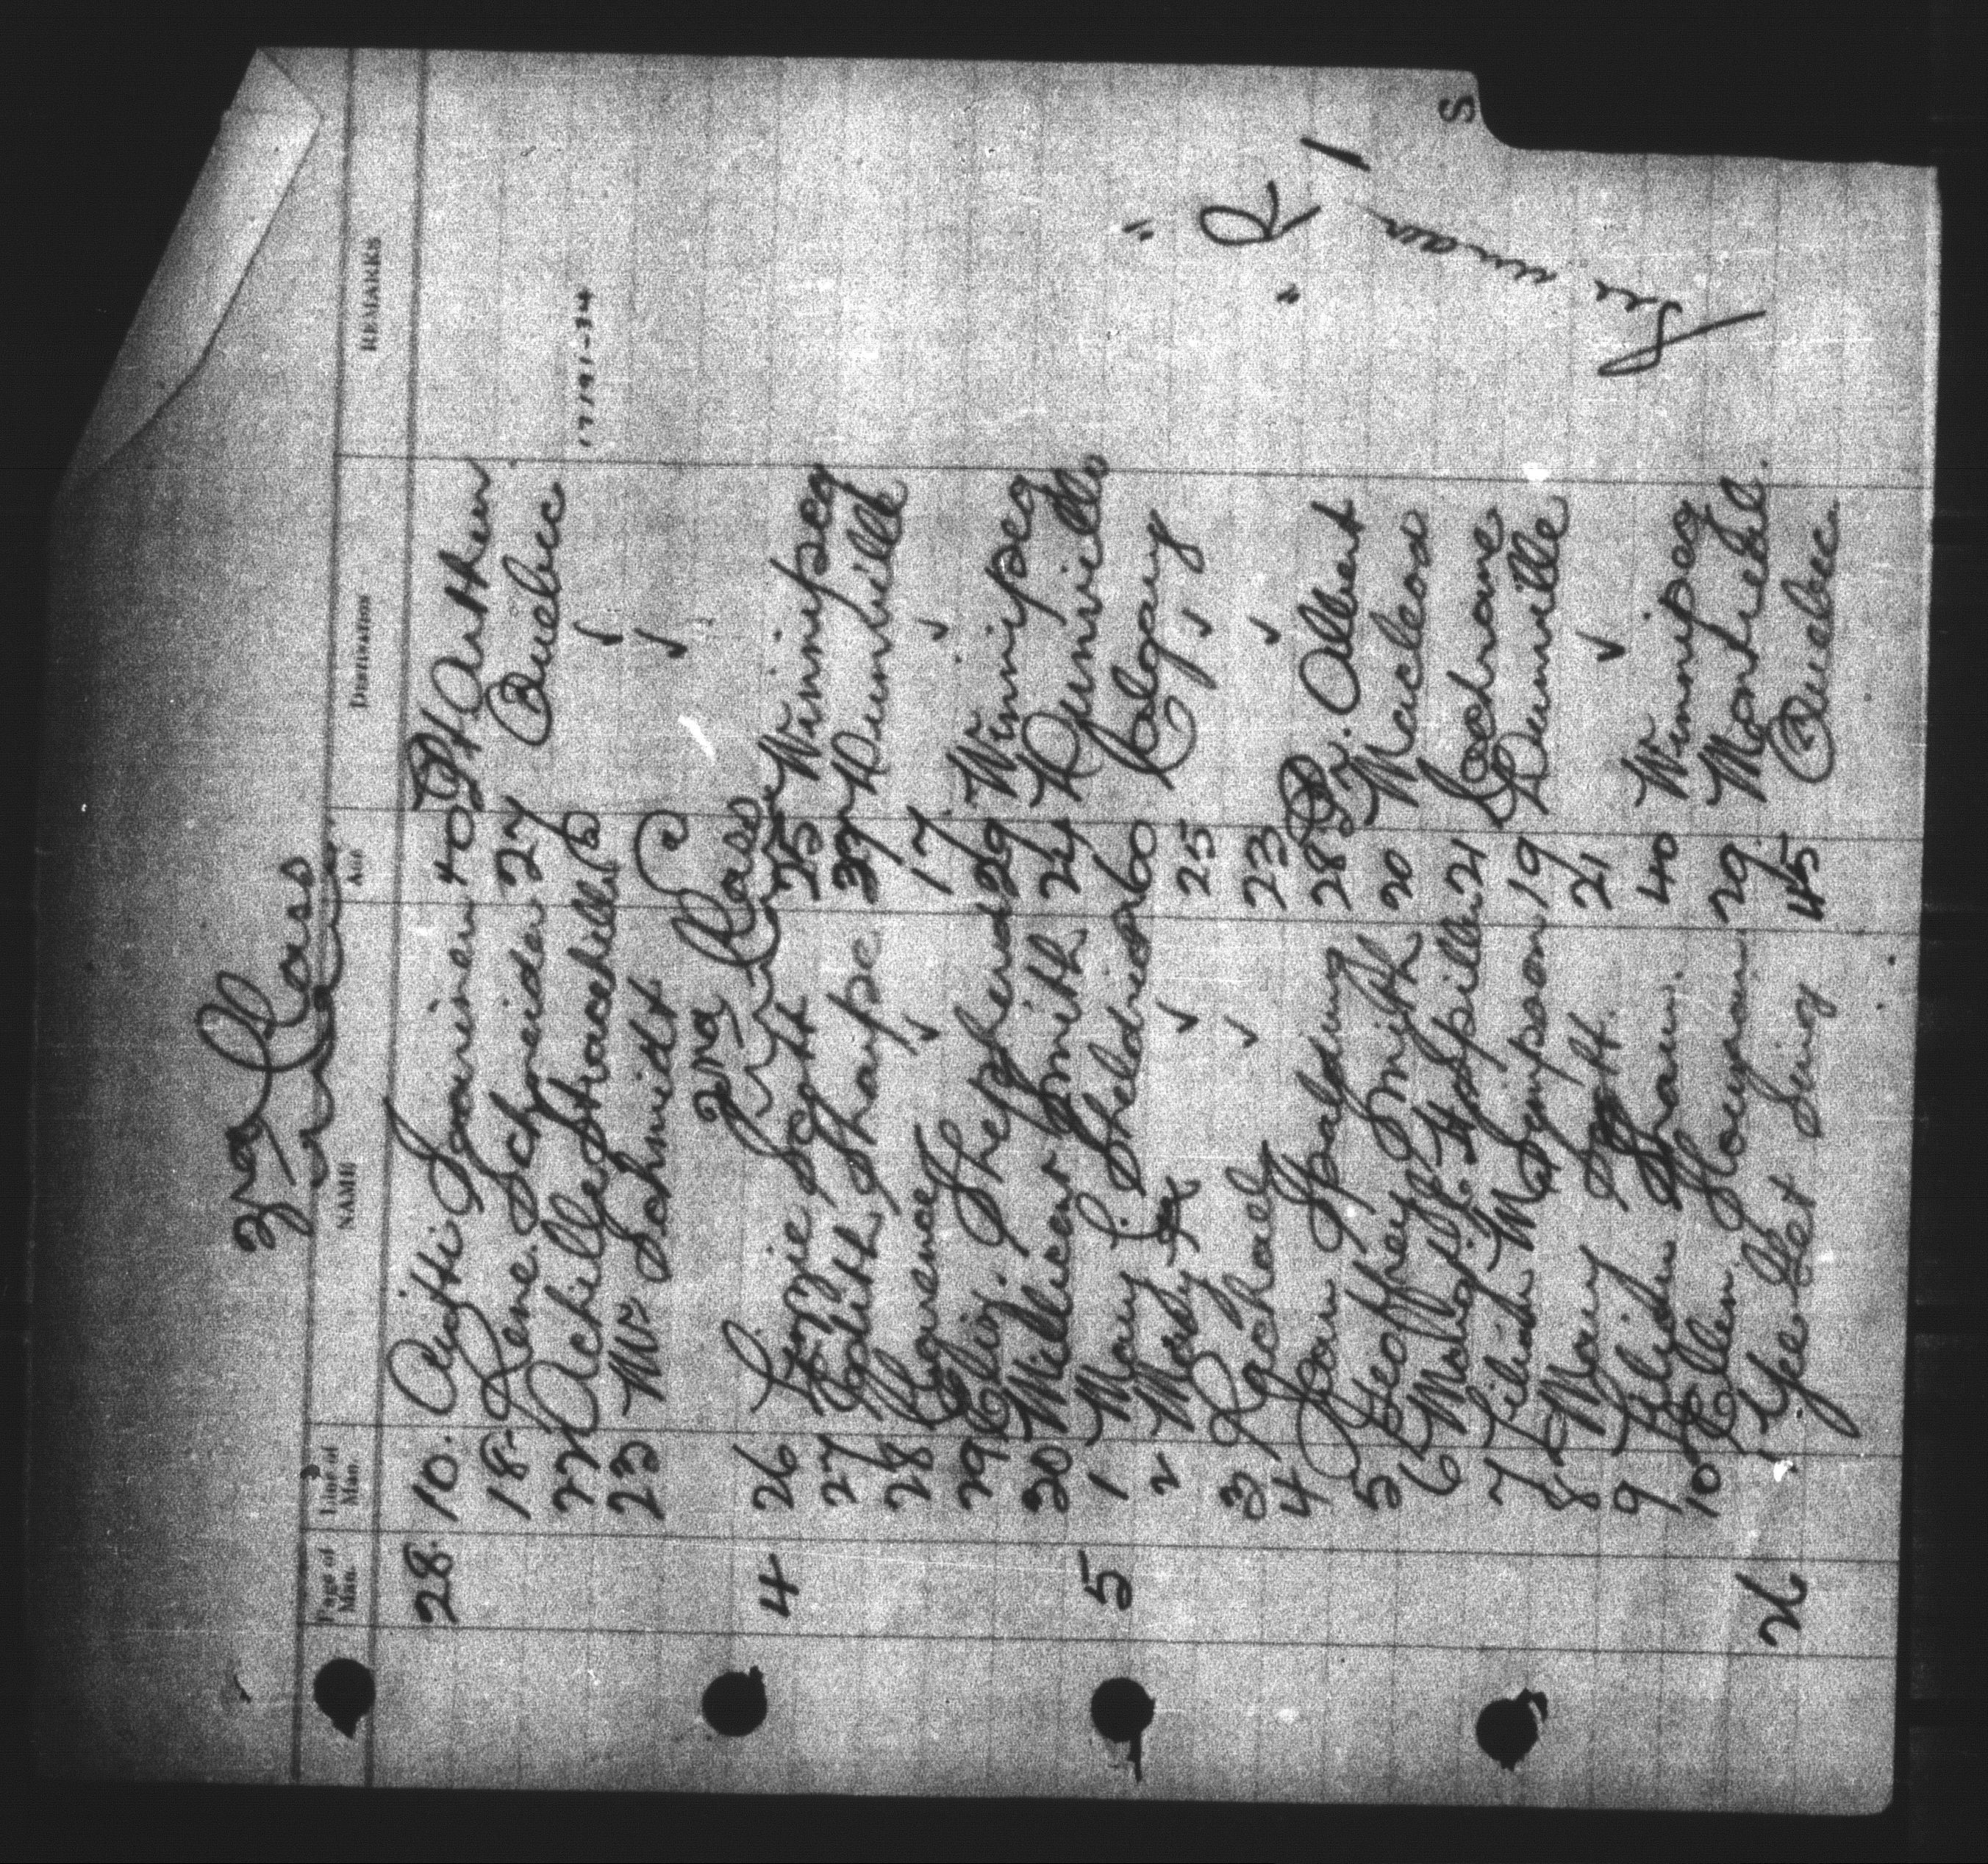 3rd Class
Page of Man.
Line of Man.
NAME
AGE
Distination
REMARKS
28. 10. Antti Saarinen 40 Pt Arthur
18 Rene Schneider 27 Quebec
22 Achille Strachelle 5 ✓
17191-34
23 Mr Schmidt ✓
2nd Class
4 26 Lizzie Scott 25 Winnipeg
27 Edith Sharpe 37 Dunville
28 Clarence ✓ 17 ✓
29 Eliz. Shepherd 29 Winnipeg
30 Millicent Smith 24 Dunville
5 1 Mary J. Sheldrick 60 Calgary
2 Mary ✓ 25 ✓
3 Rachael ✓ 23 ✓
4 Jean Spalding 28 Pr. Albert
5 Geoffrey Smith 20 Macleod
6 Mabel H. Spiller 21 Cochrane
7 Lilian M Simpson 19 Dunville
8 Mary 21 ✓
9 Lilian Shaw. 40 Winnipeg
10 Ellen Sloman 29 Montreal.
26 1 Yee Get Sing 45 Quebec
" R
"
S